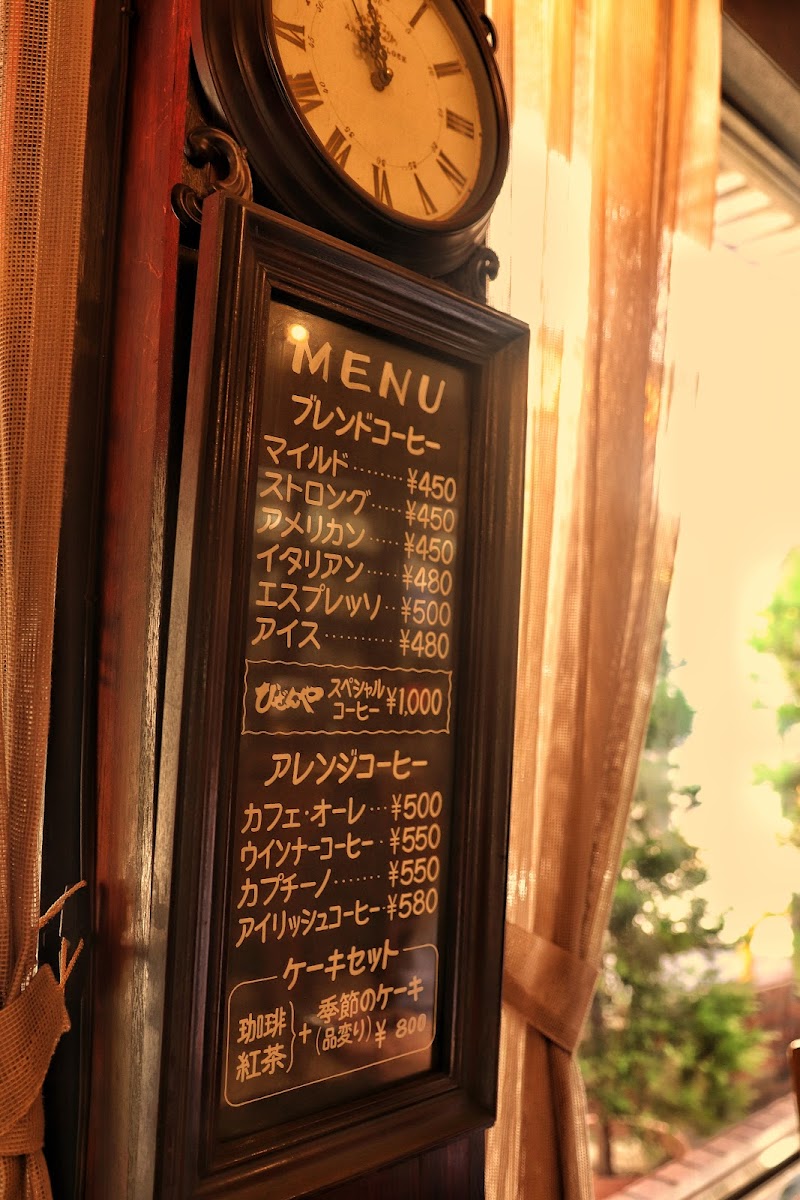 MENU
ブレンドコーヒー
マイルド········¥450
ストロング·····¥450
アメリカン·····¥450
イタリアン·····¥480
エスプレッソ··¥500
アイス··········¥480
びどんや スペシャル
コーヒー ¥1,000
アレンジコーヒー
カフェ・オーレ···¥500
ウインナーコーヒー··¥550
カプチーノ·······¥550
アイリッシュコーヒー··¥580
ケーキセット
珈琲
紅茶
+
季節のケーキ
(品変り) ¥ 800